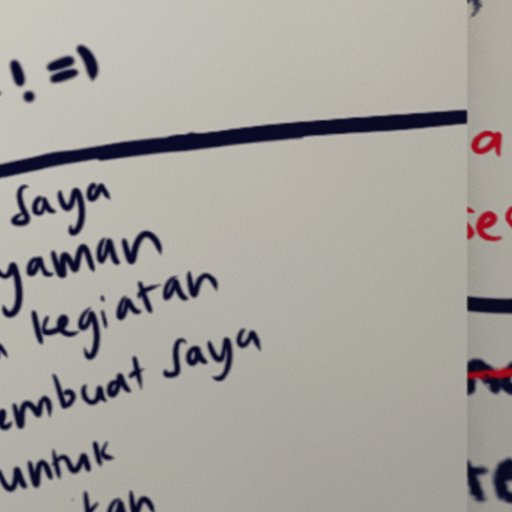 ! =)
saya
yaman
kegiatan
embuat saya
untuk
kan
a
ses
te